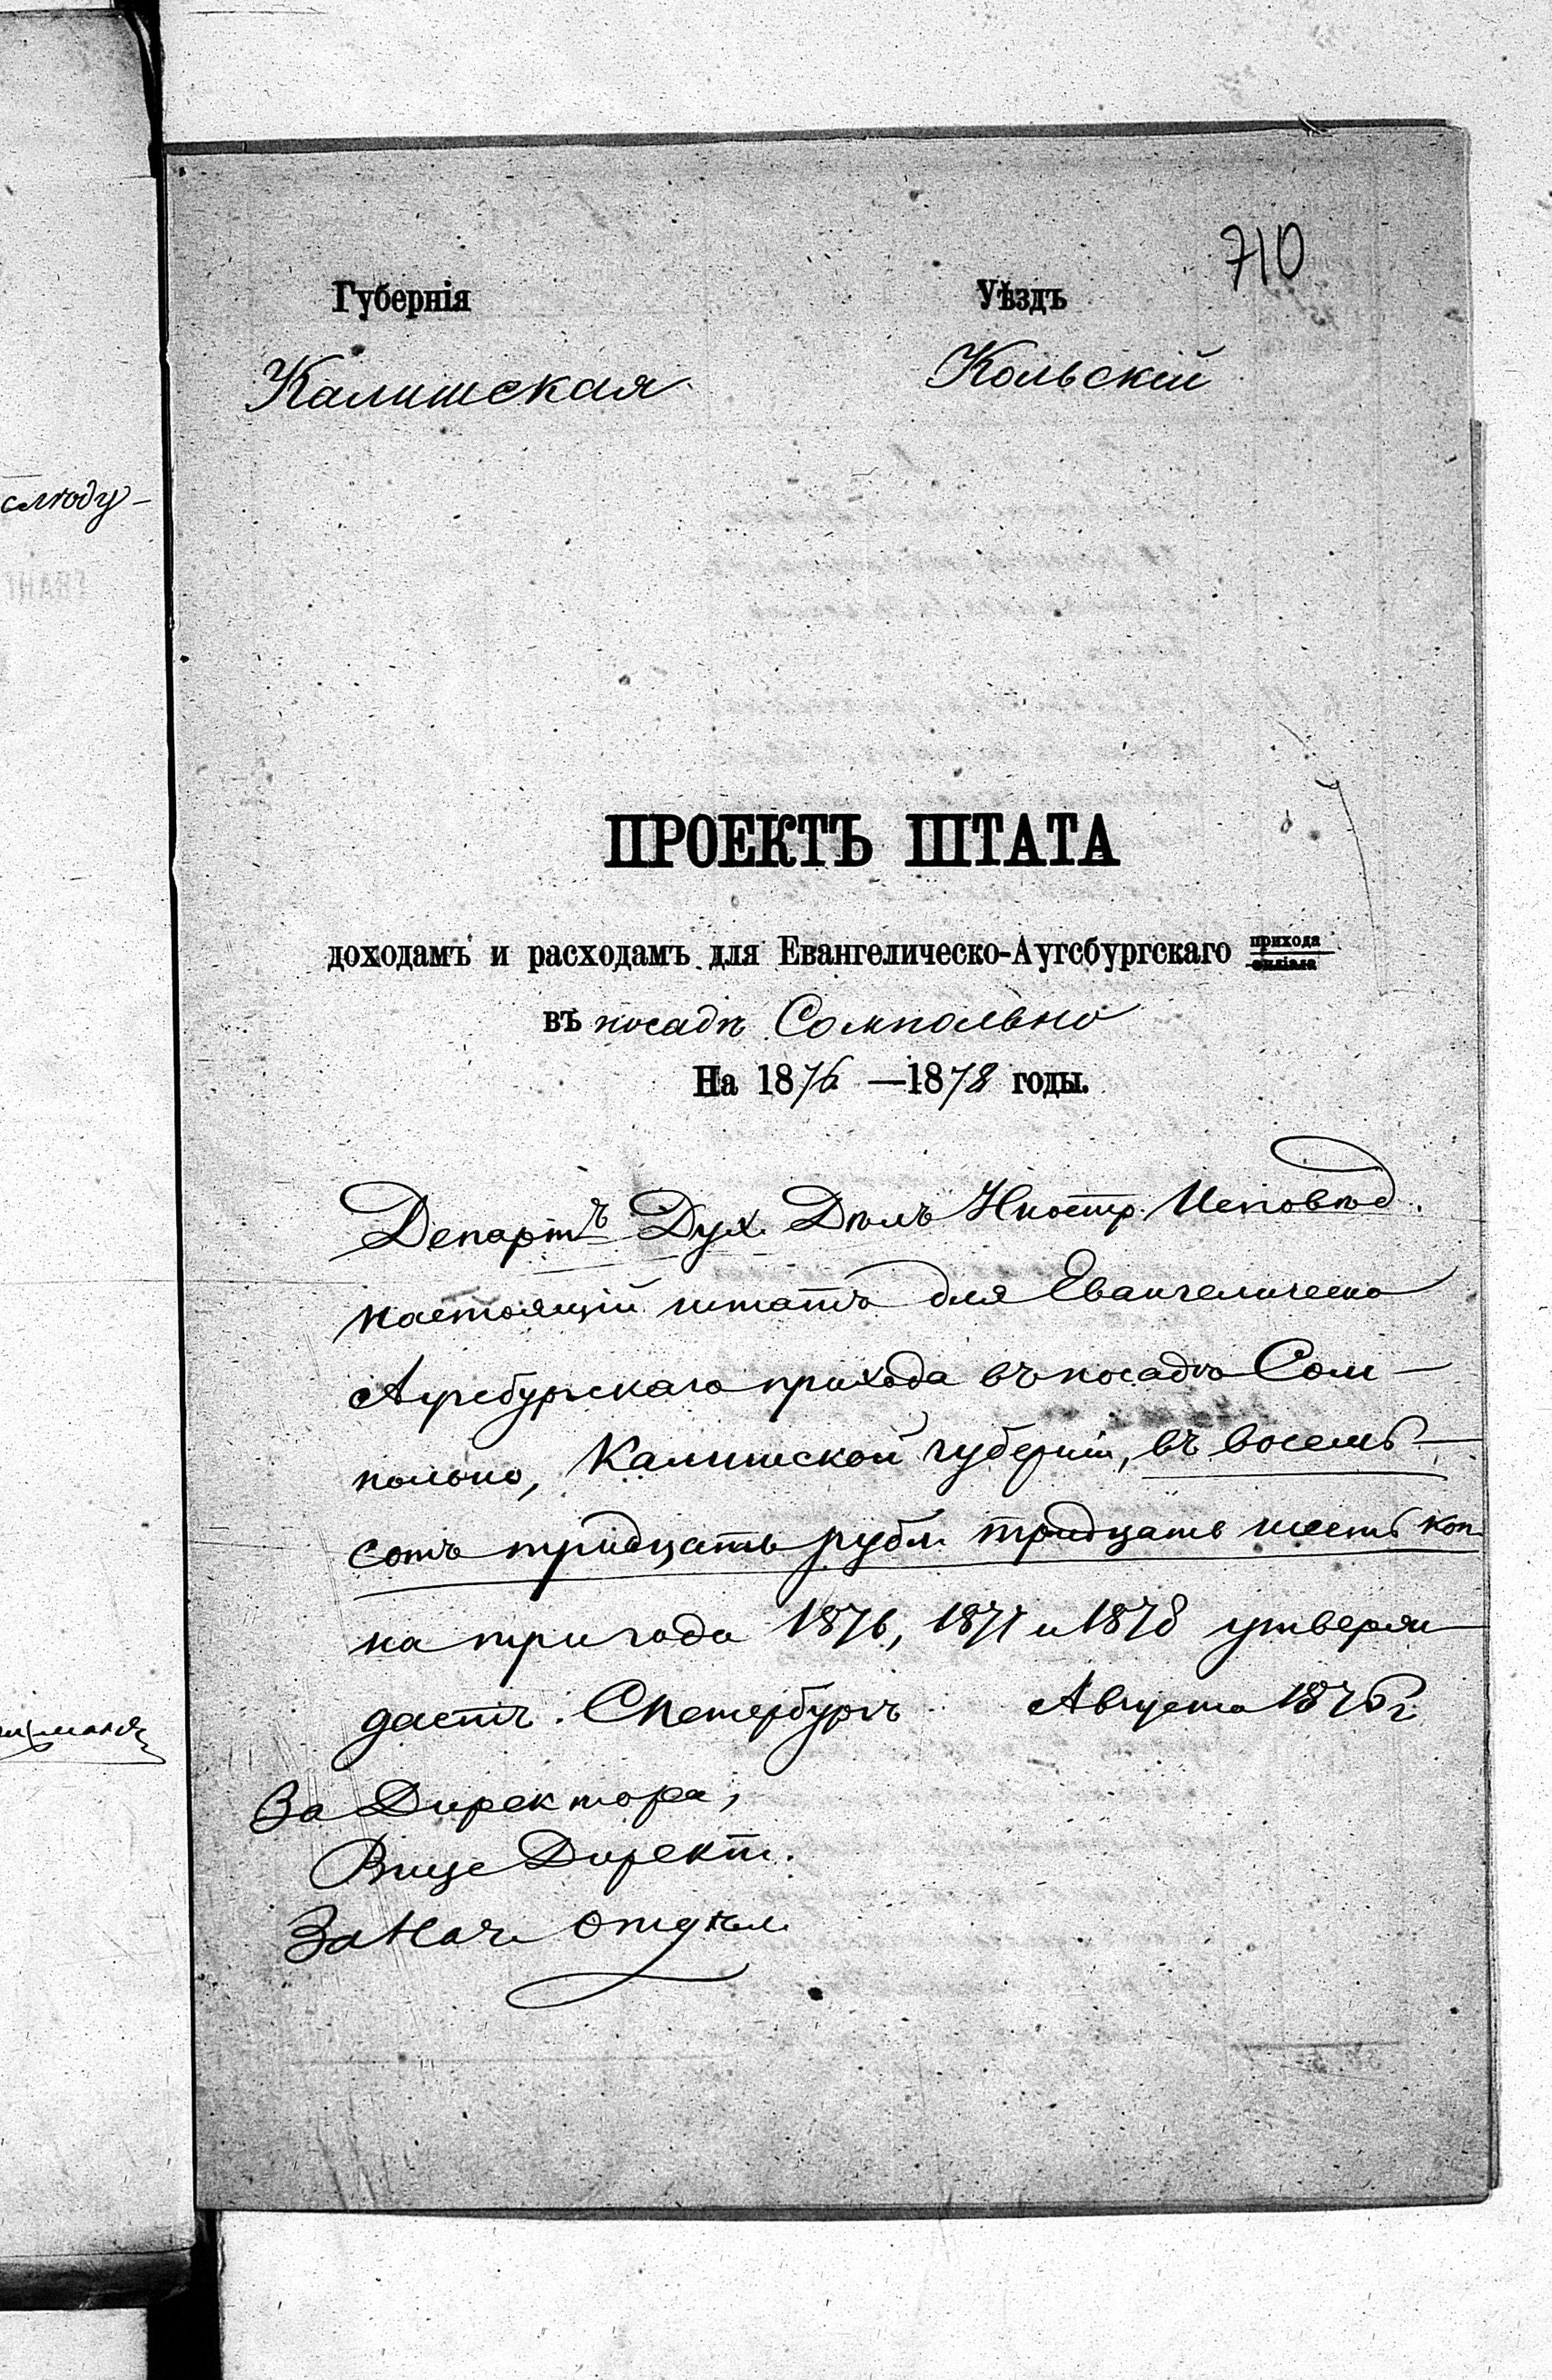 710
Губернія Уѣздъ
Калишская Кольскій
слюду-
ПРОЕКТЪ ШТАТА
доходамъ и расходамъ для Евангелическо-Аугсбургскаго прихода филіала
въ посадѣ Сомпольно
На 1876 —1878 годы.
Департъ Дух. Дѣлъ Иностр. Исповѣд.
настоящій штатъ для Евангелическо
Аугсбургскаго прихода въ посадѣ Сом-
польно, Калишской губерніи, въ восемь-
сотъ тридцать рубл. тридцать шесть коп.
на три года 1876, 1877 и 1878 утверж-
даетъ. СПетербургъ Августа 1876 г.
За Директора,
Вице Директ.
За Нач. Отдѣл.